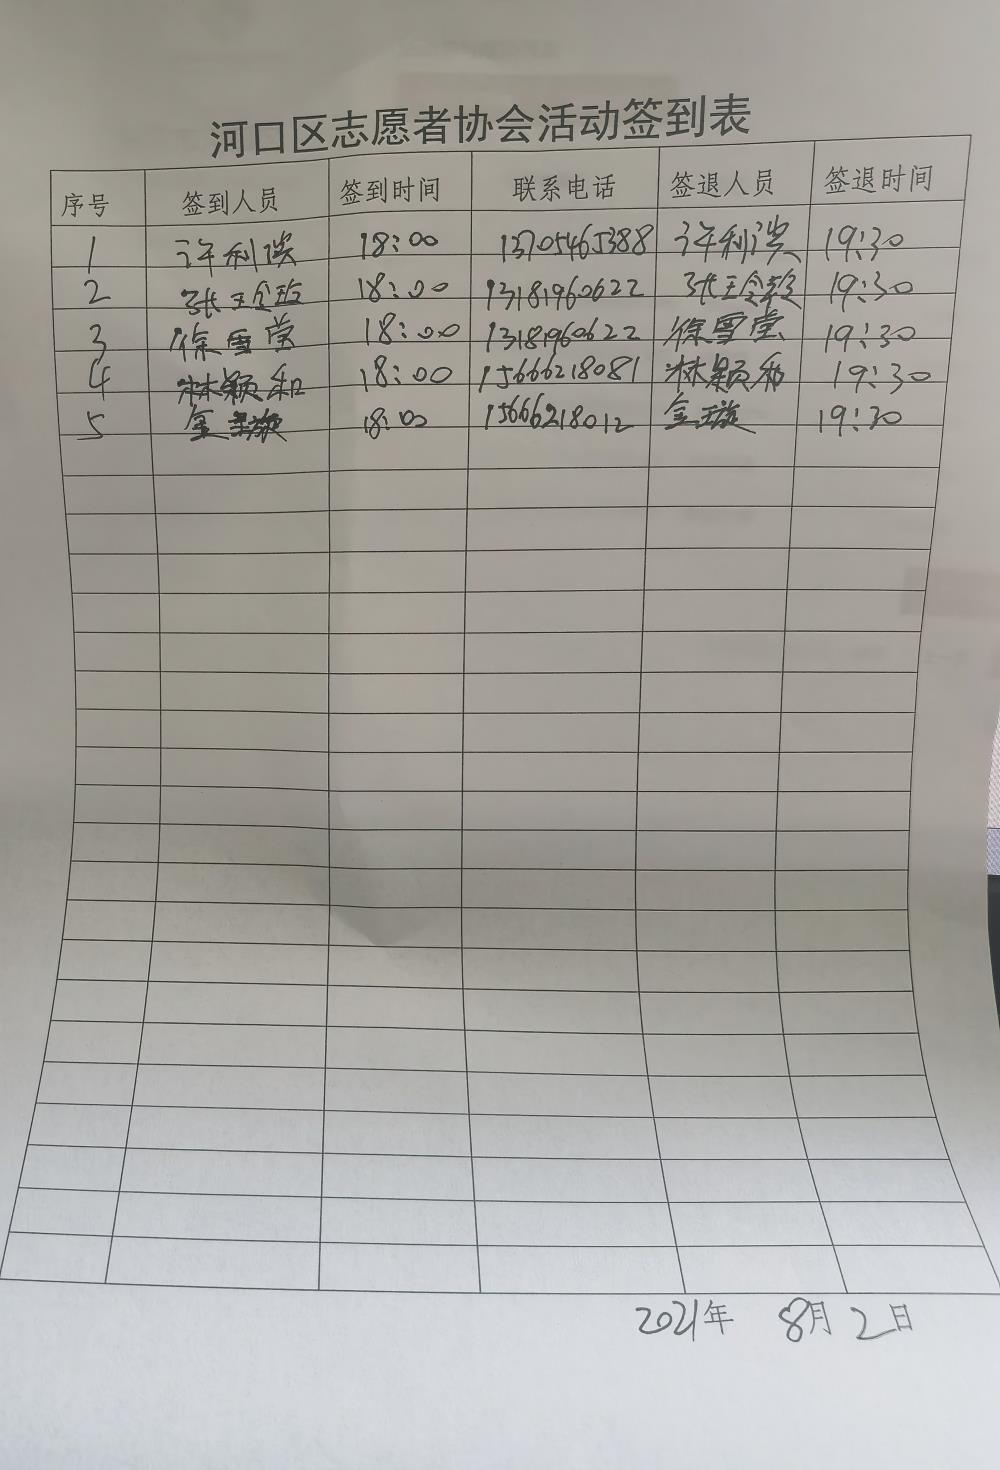 河口区志愿者协会活动签到表
序号 签到人员 签到时间 联系电话 签退人员 签退时间
1 许利淡 18:00 13705465388 许利淡 19:30
2 18:00 13181960622 19:30
3 徐雪莹 18:00 13181960622 徐雪莹 19:30
4 林颖和 18:00 15666218081 林颖和 19:30
5 金璇 18:00 15666218012 金璇 19:30
2021年 8月2日